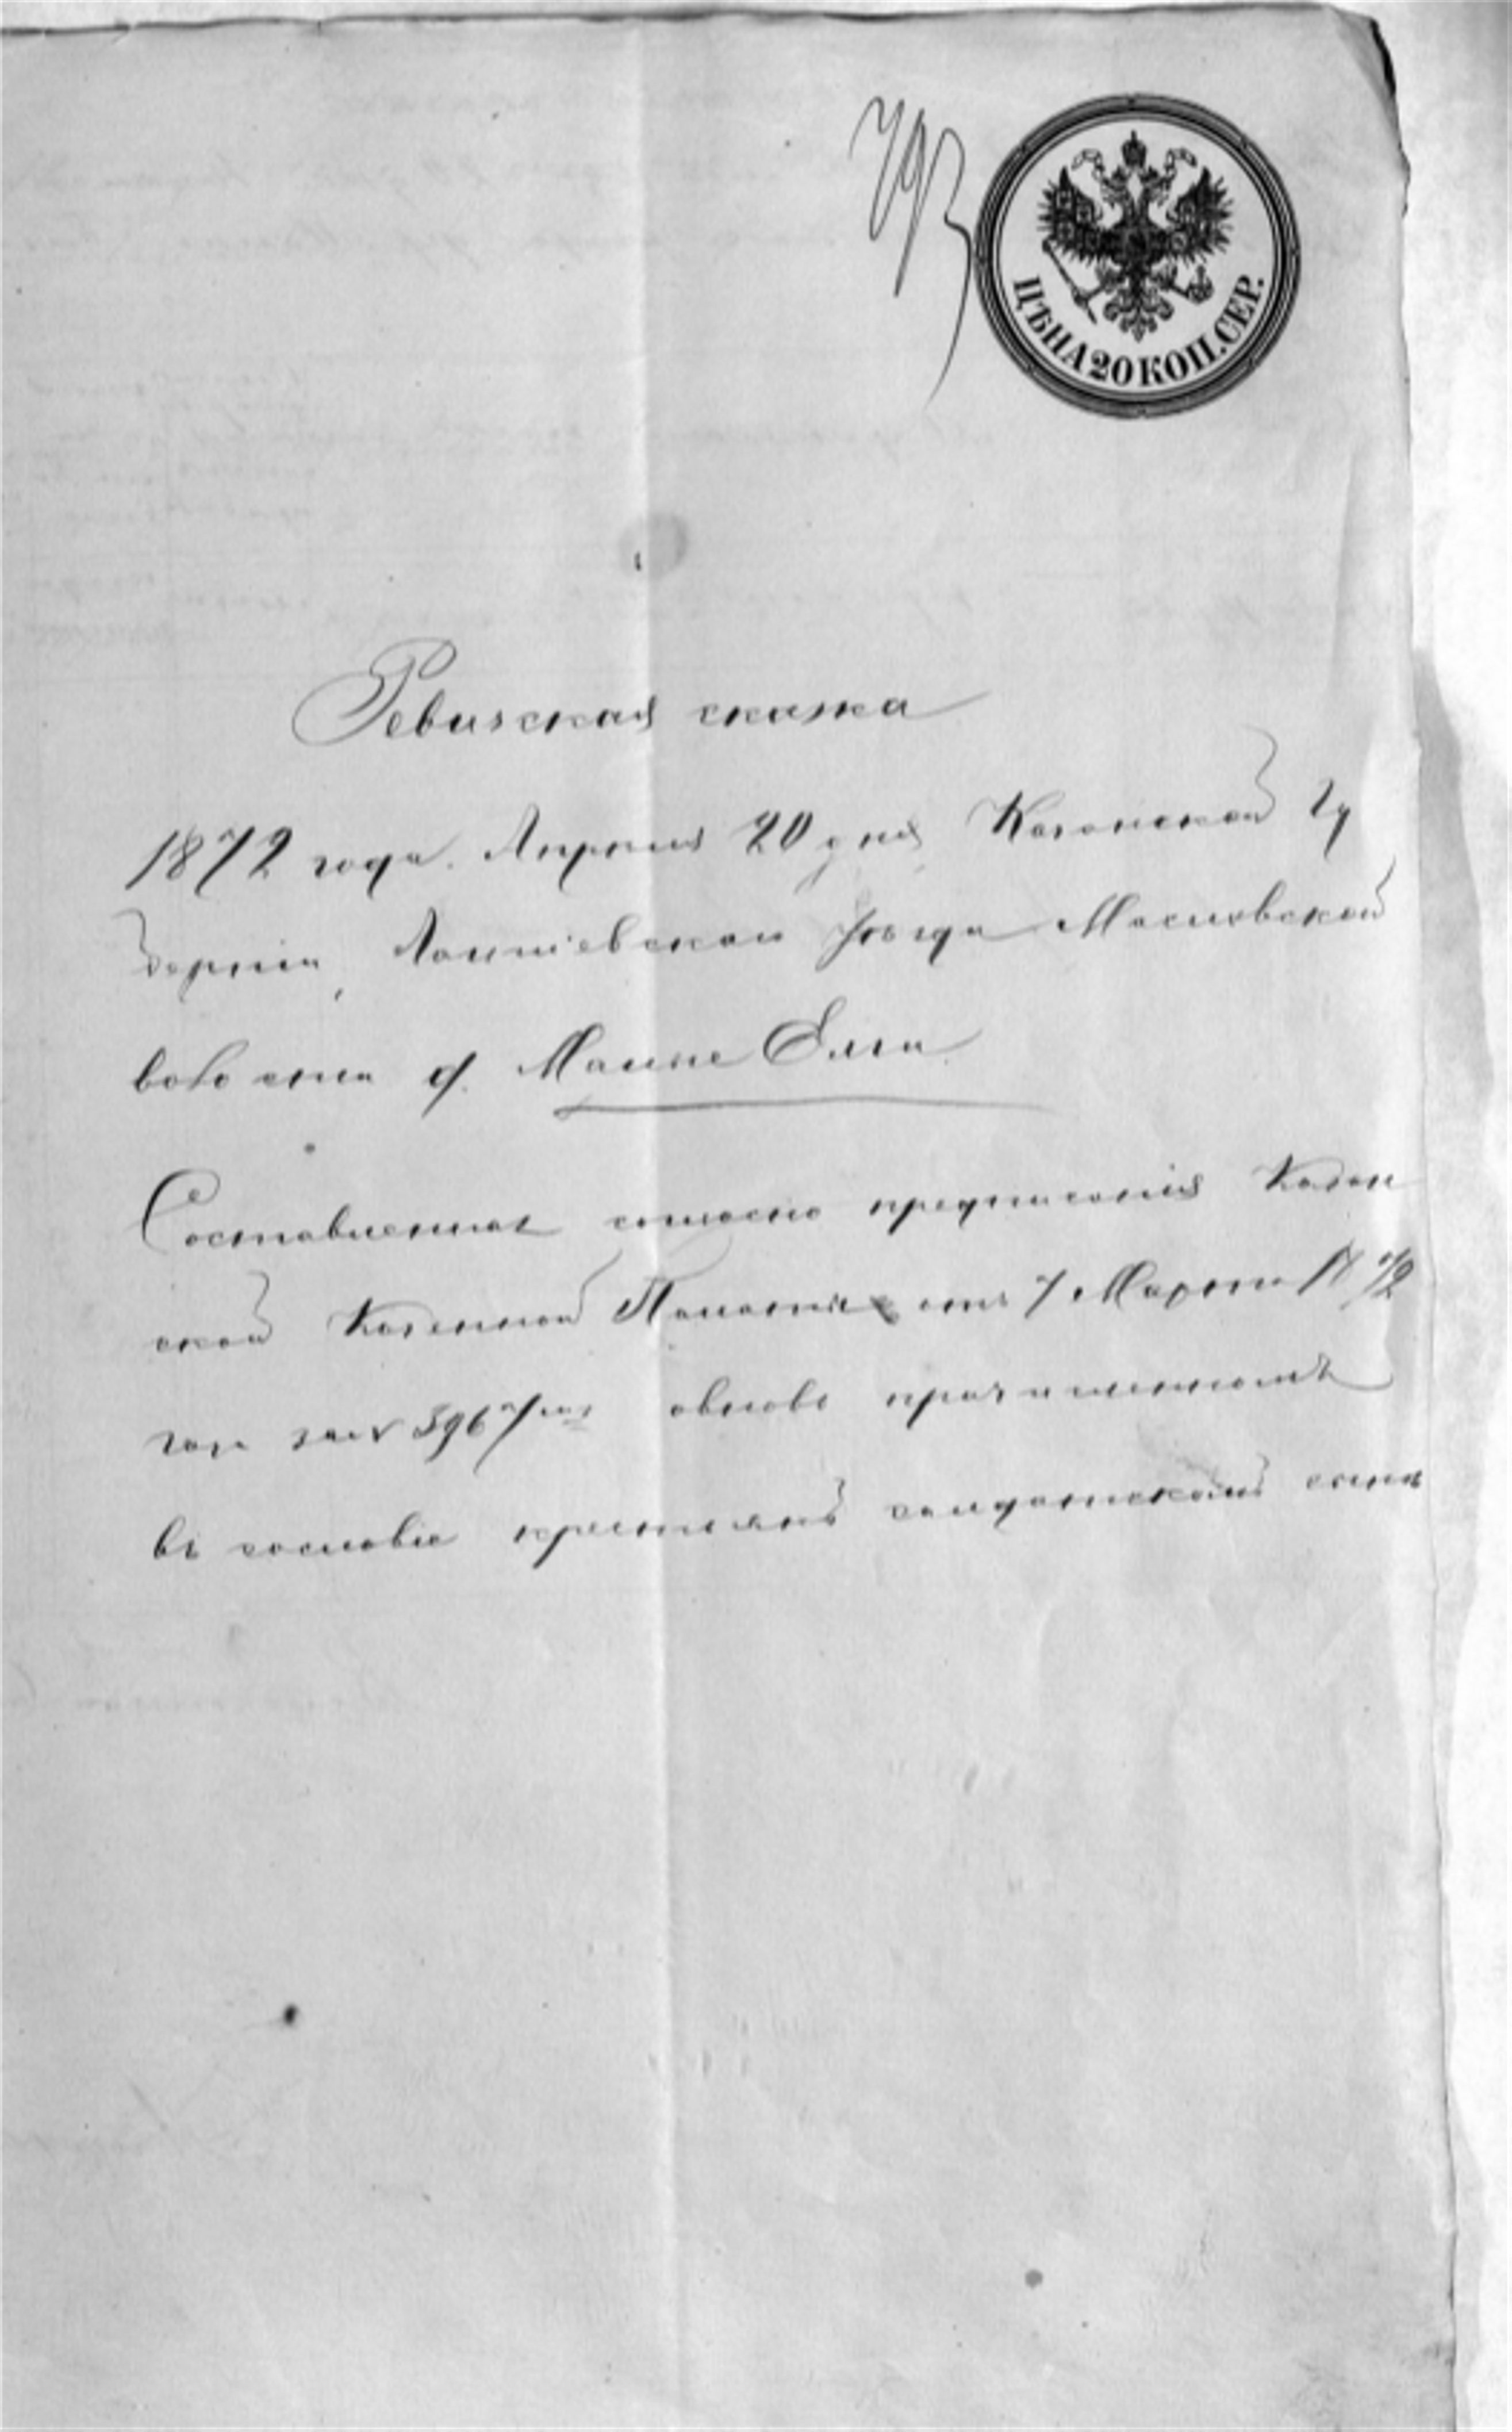 793
ЦѢНА 20 КОП. СЕР.
Ревизская сказка
1872 года. Апреля 20 дня Казанской Гу
берніи, Лаишевскаго уѣзда Масловской
волости д. Малые Елги
Составленная согласно предписанія Казан
ской Казенной Палаты отъ 7 Марта 1872
года за № 5967 овновь причисленномъ
въ сословіе крестьянъ солдатскомъ сынѣ